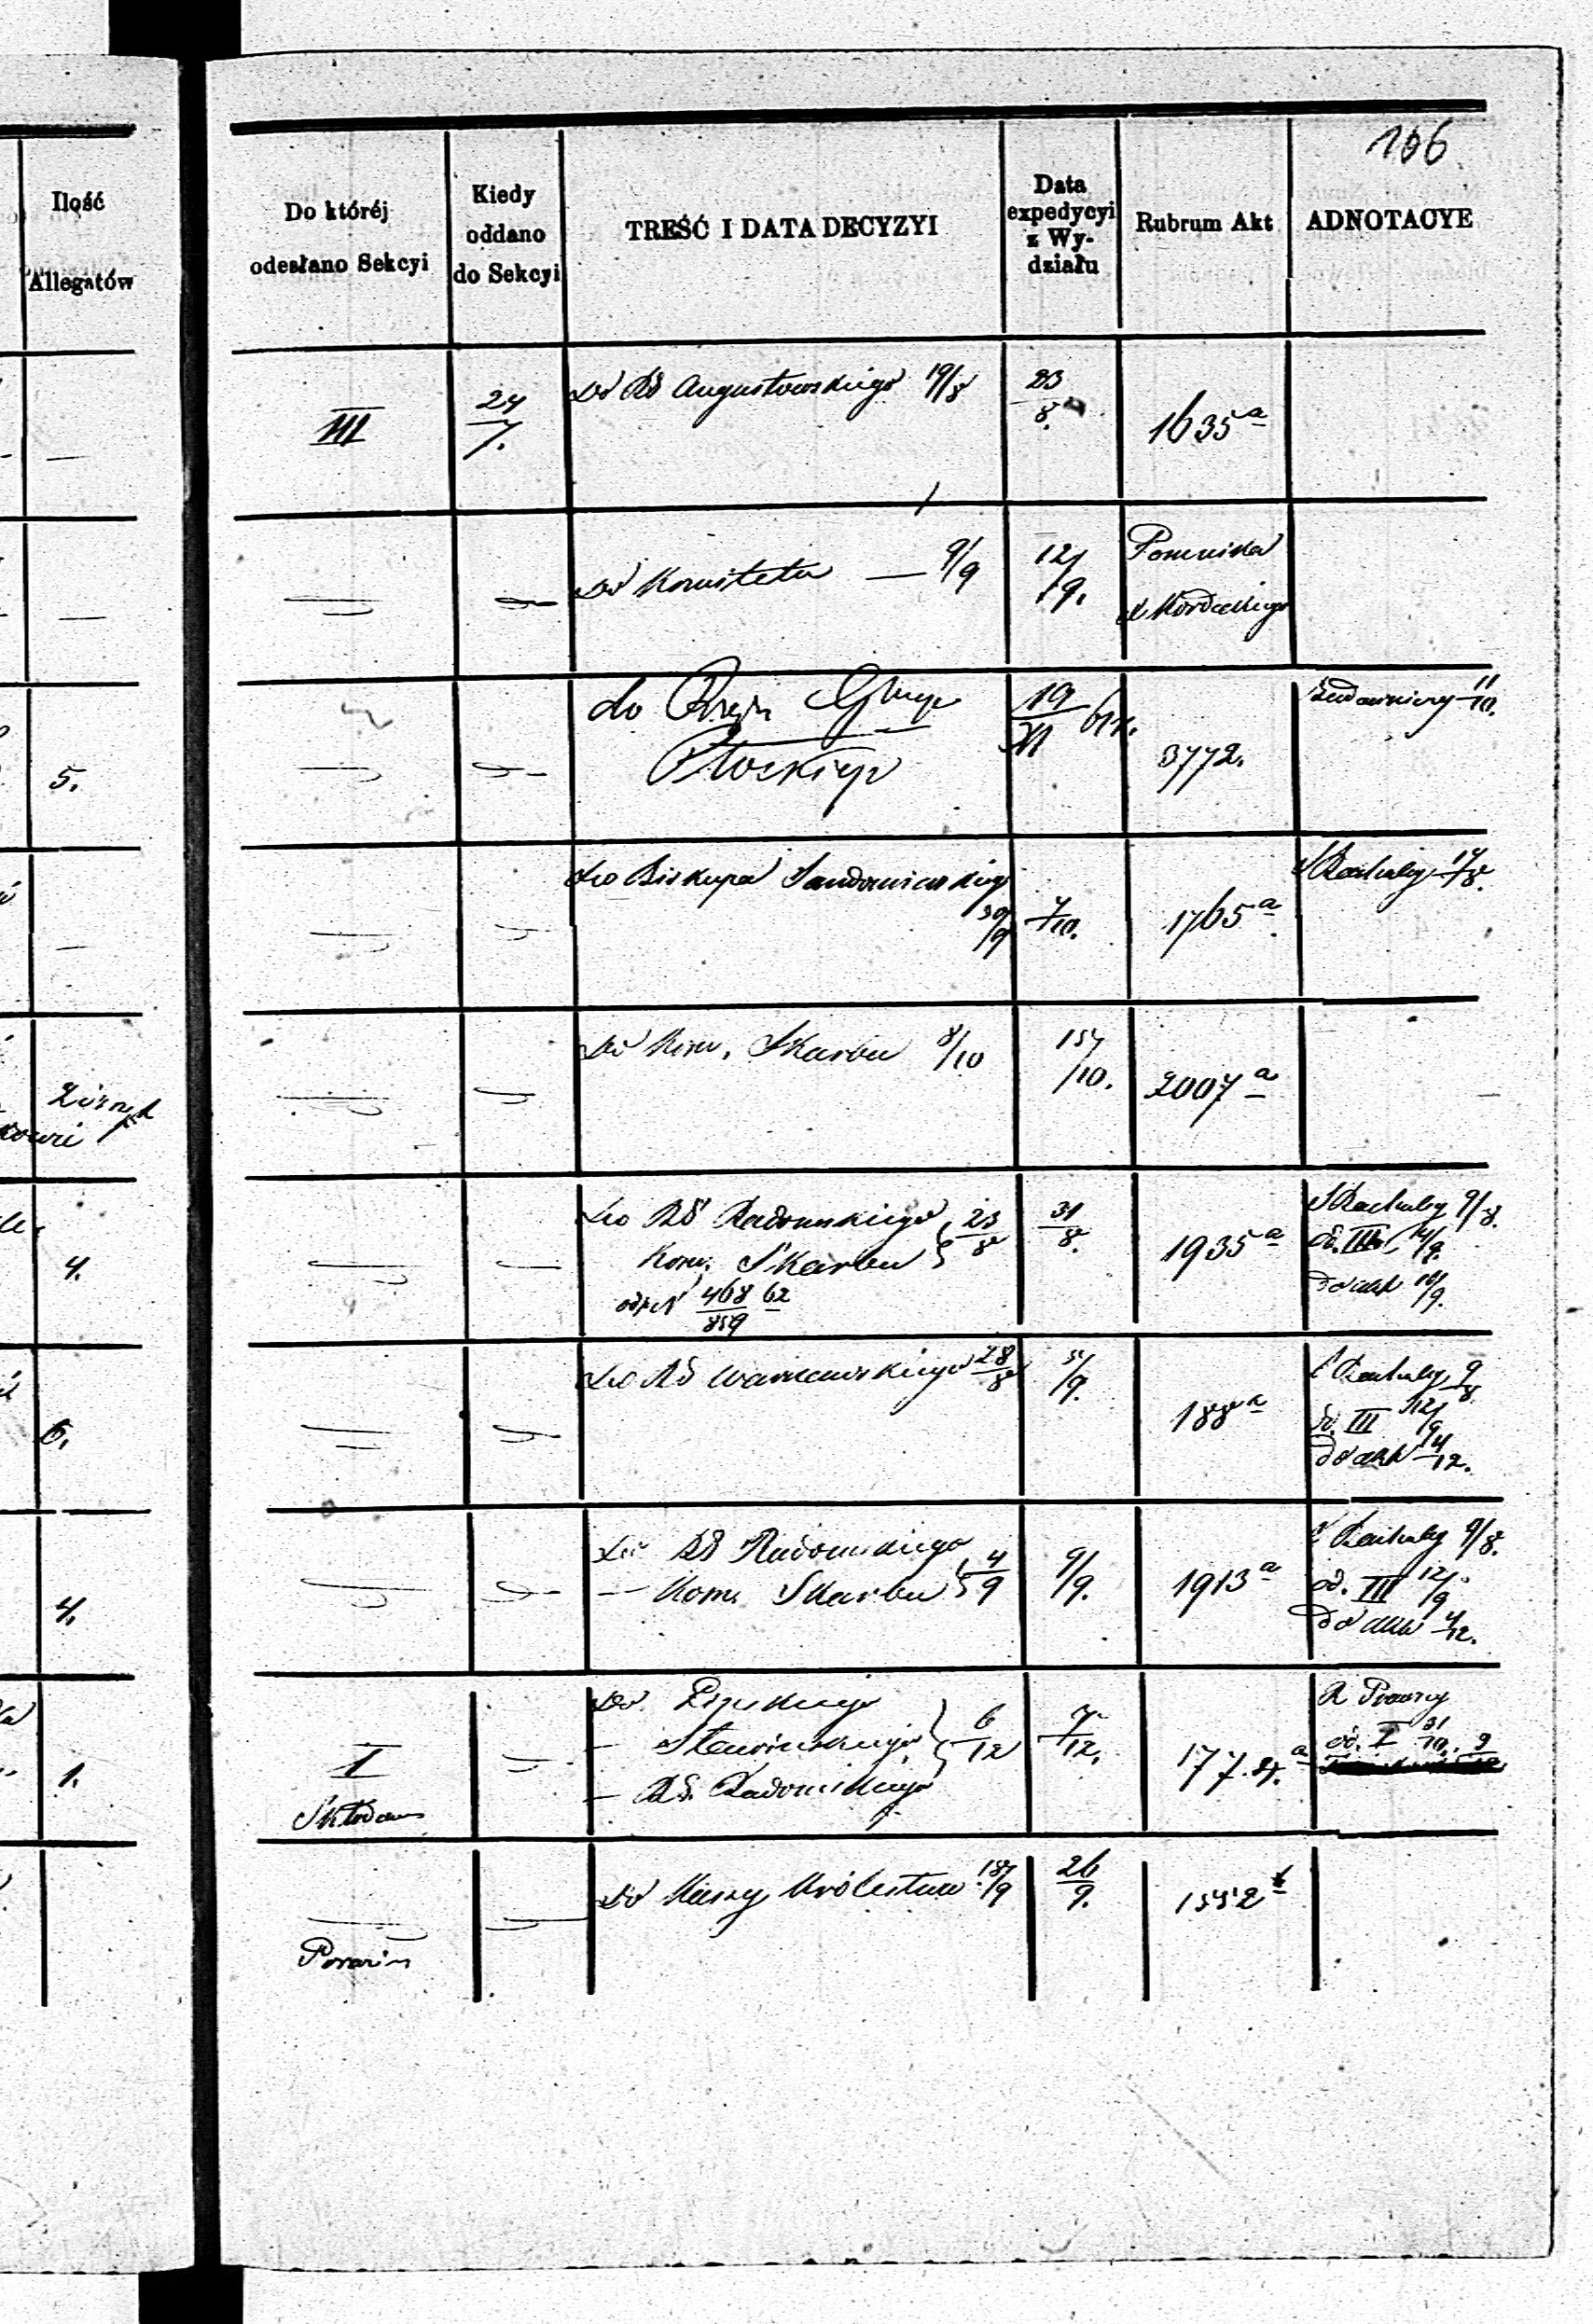 106
Ilość
Allegatów
Do któréj
odesłano Sekcyi
Kiedy
oddano
do Sekcyi
TREŚĆ I DATA DECYZYI
Data
expedycyi
z Wy-
działu
Rubrum Akt
ADNOTACYE
III
24/7.
Do RG Augustowskiego 19/8
23/8.
1635 a
Do Komitetu — 9/9
12/9.
Pomnika
X Kordeckiego
5.
do
Płockiego
19/XI 61 r.
3772.
11/10.
Do Biskupa Sandomierskiego
30/9
7/10.
1765 a
S Rachuby 14/8.
Do Kom. Skarbu 8/10
15/10.
2007 a
4.
Do RG Radomskiego
Kom. Skarbu } 23/8
468/859 62
31/8.
1935 a
S Rachuby 9/8.
od. III 14/9.
do akt 16/9.
6.
Do RG Warszawskiego 28/8
5/9.
188 a
S Rachuby 9/8.
od. III 12/9
do akt 4/12.
4.
Do RG Radomskiego
— Kom. Skarbu } 4/9
9/9.
1913 a
S Rachuby 9/8.
od. III 12/9
do akt 4/12.
1.
I
Skłodow
Do Lipskiego
— Stawiarskiego } 6/12
— RG. Radomskiego
7/12.
R Prawny
od. I 31/10.
Do Kassy Królestwa 18/9
26/9.
1552